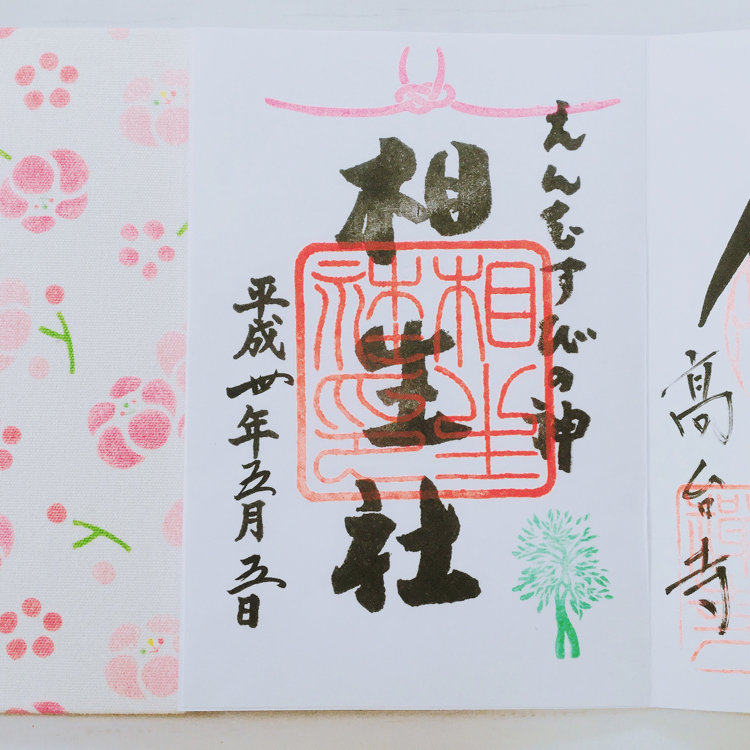 高台寺
えんむすびの神
相生社
相生社印
平成卅年五月五日